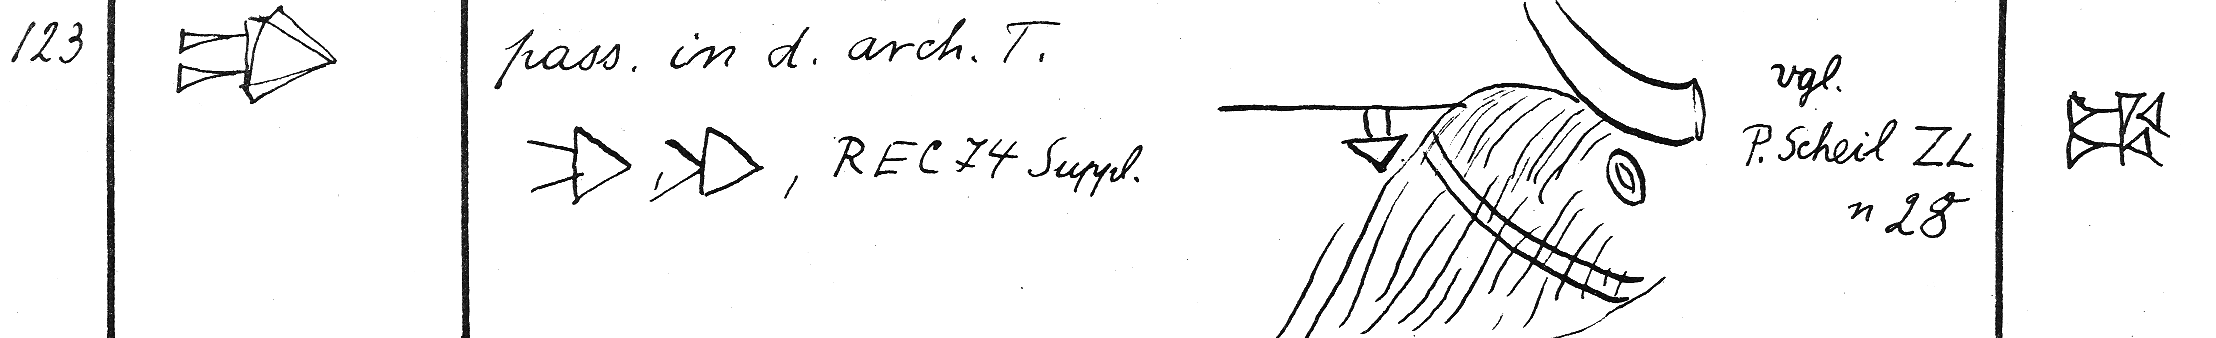 123
pass. in d. arch. T.
, , REC 74 Suppl.
vgl.
P. Scheil ZL
n 28